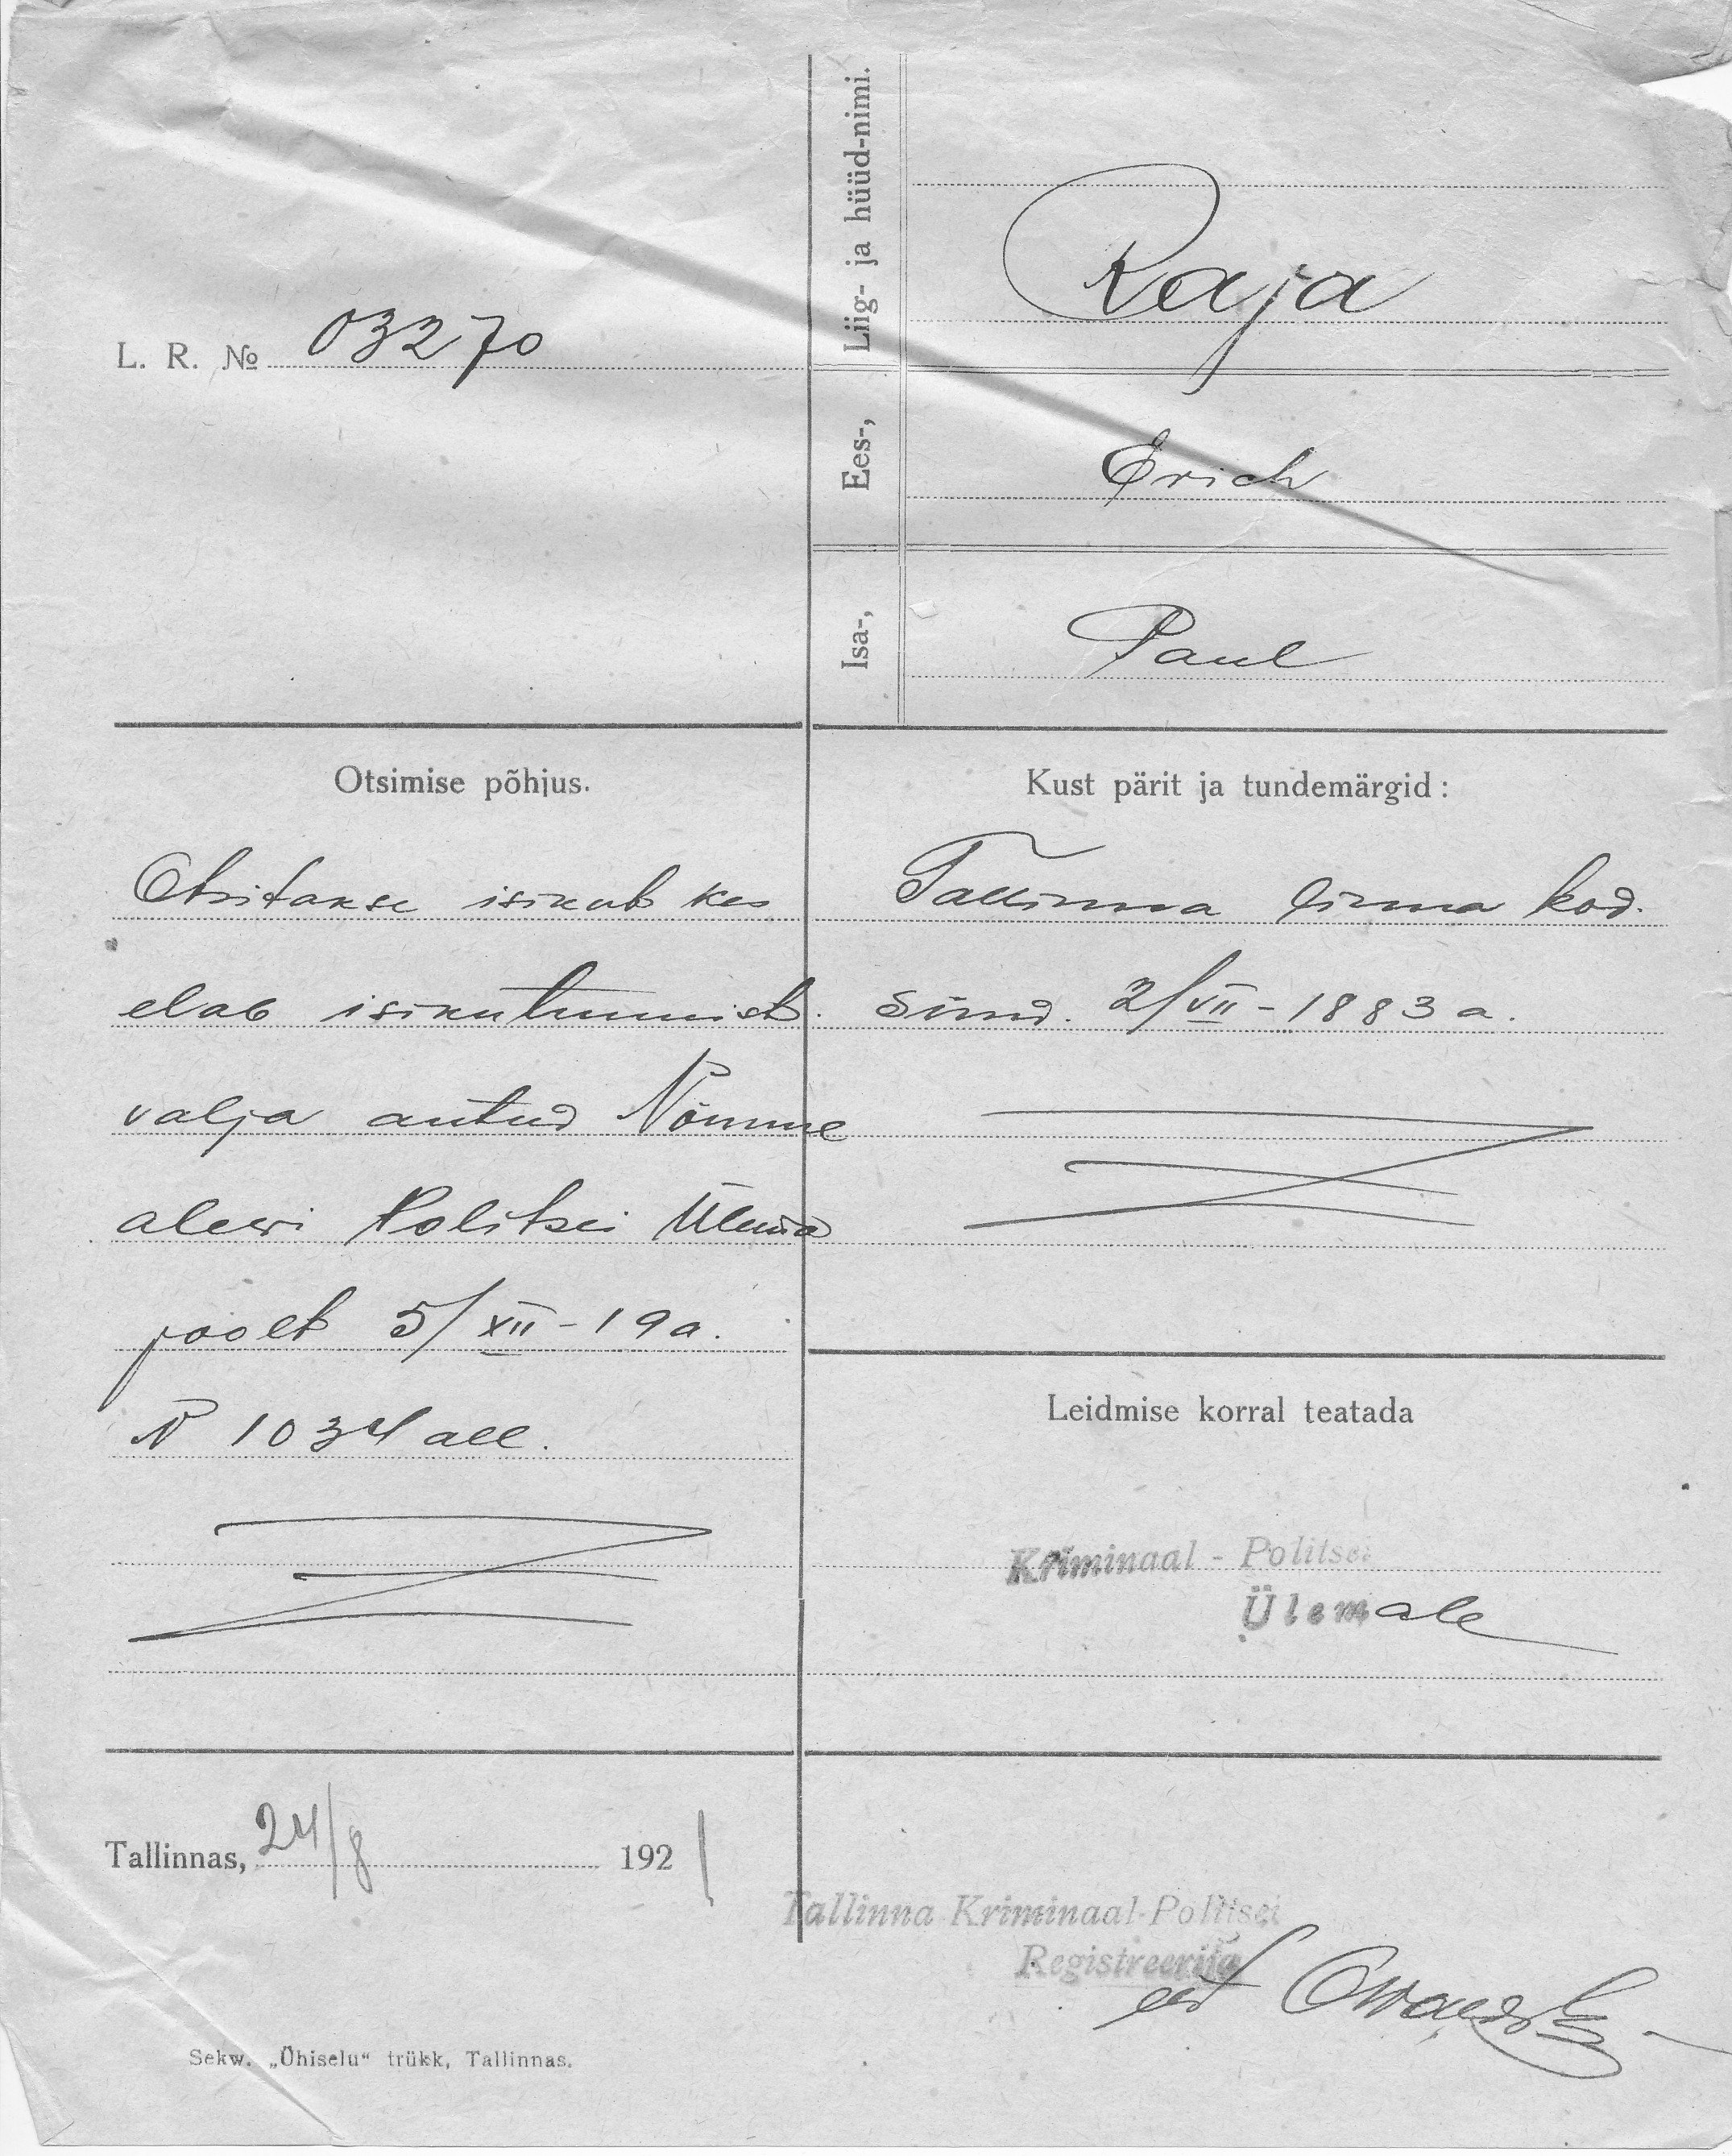 L. R. № 03270
Liig- ja hüüd-nimi.
Raja
Ees-,
Erich
Isa-,
Paul
Otsimise põhjus.
Otsitakse isikut kes
elab isikutunnist.
valja antud Nõmme
alewi Politsei Ülema
poolt 5/XII-19 a.
N 1034 all.
Kust pärit ja tundemärgid:
Tallinna linna kod.
sünd. 2/VII-1883 a.
Leidmise korral teatada
Kriminaal - Politsei
Ülemale
Tallinnas, 24/8 1921
Tallinna Kriminaal-Politsei
Registreerija
Sekw. „Ühiselu“ trükk, Tallinnas.